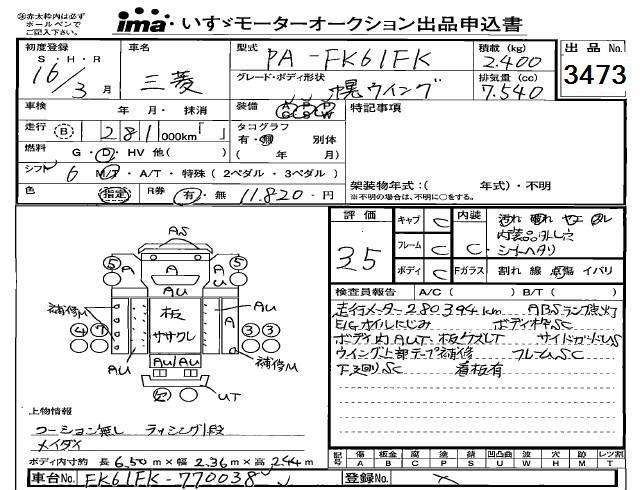 ㊟赤太枠内は必ず
ボールペンで
ご記入下さい。
ima いすゞモーターオークション出品申込書
初度登録
S・H・R
16/3 月
車名
三菱
型式
PA-FK61FK
グレード・ボディ形状
幌ウイング
積載(kg)
2.400
排気量(cc)
7.540
出品No.
3473
車検 年 月・抹消
装備
特記事項
走行 B 281 000km「 」
タコグラフ
有・無 別体
( 年 月)
燃料 G・D・HV 他( )
シフト 6 M/T・A/T・特殊(2ペダル・3ペダル)
架装物年式:( 年式)・不明
※不明の場合は、不明に○をする。
色 指定 R券 有・無 11.820-円
評価
3.5
キャブ C
フレーム C
ボディ C
内装 C
汚れ
内装品外し穴
シートヘタリ
Fガラス 割れ 線 点傷 イバリ
検査員報告 A/C( ) B/T( )
走行メーター280394km ABSランプ点灯
E/Gオイルにじみ ボディ枠SC
ボディ内AUT・板ササクレUT サイドガードUS
ウイング上部テープ補修 フレームSC
下廻りSC 看板有
AS
5
A
A
A
5
AU
補修M
4
AU
板
ササクレ
A
AU
3 3
補修M
AU
AU/AU
UT
上物情報
コーション無し ラッシング2段
メイダイ
ボディ内寸約 長 6.50m×幅 2.36m×高 2.44m
記号
傷 A
板金 B
腐 C
塗 P
錆 S
凹凸曲 U
波 W
穴 H
多 M
レツ割 T
車台No. FK61FK-770038
登録No.